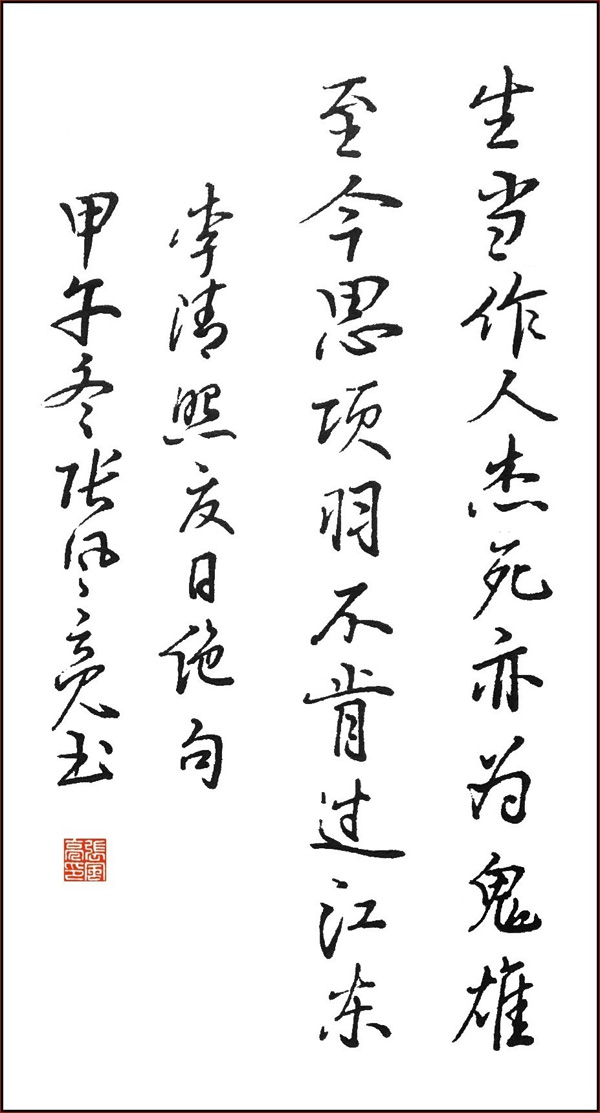 生当作人杰死亦为鬼雄
至今思项羽不肯过江东
李清照夏日绝句
甲午冬张风亮书
張風
亮印